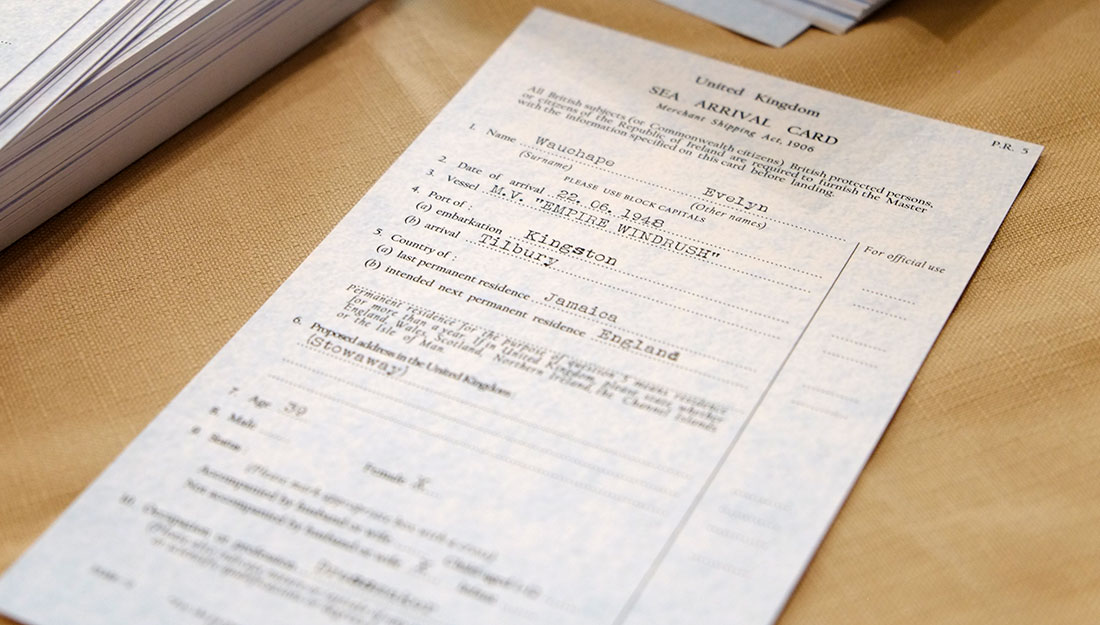 United Kingdom
SEA ARRIVAL CARD
Merchant Shipping Act, 1906
P.R. 5
All British subjects (or Commonwealth citizens) British protected persons,
or citizens of the Republic of Ireland are required to furnish the Master
with the information specified on this card before landing.
1. Name Wauchape Evelyn
(Surname) PLEASE USE BLOCK CAPITALS (Other names)
2. Date of arrival 22. 06. 1948
3. Vessel M.V. "EMPIRE WINDRUSH"
4. Port of :
(a) embarkation Kingston
(b) arrival Tilbury
5. Country of :
(a) last permanent residence Jamaica
(b) intended next permanent residence England
For official use
Permanent residence for the purpose of question 5 means residence
for more than a year. If in United Kingdom, please state whether
England, Wales, Scotland, Northern Ireland, the Channel Islands
or the Isle of Man.
6. Proposed address in the United Kingdom
(Stowaway)
7. Age 39
8. Male Female X
9.
Accompanied by husband or wife
Not accompanied by husband or wife X
10. Occupation or profession